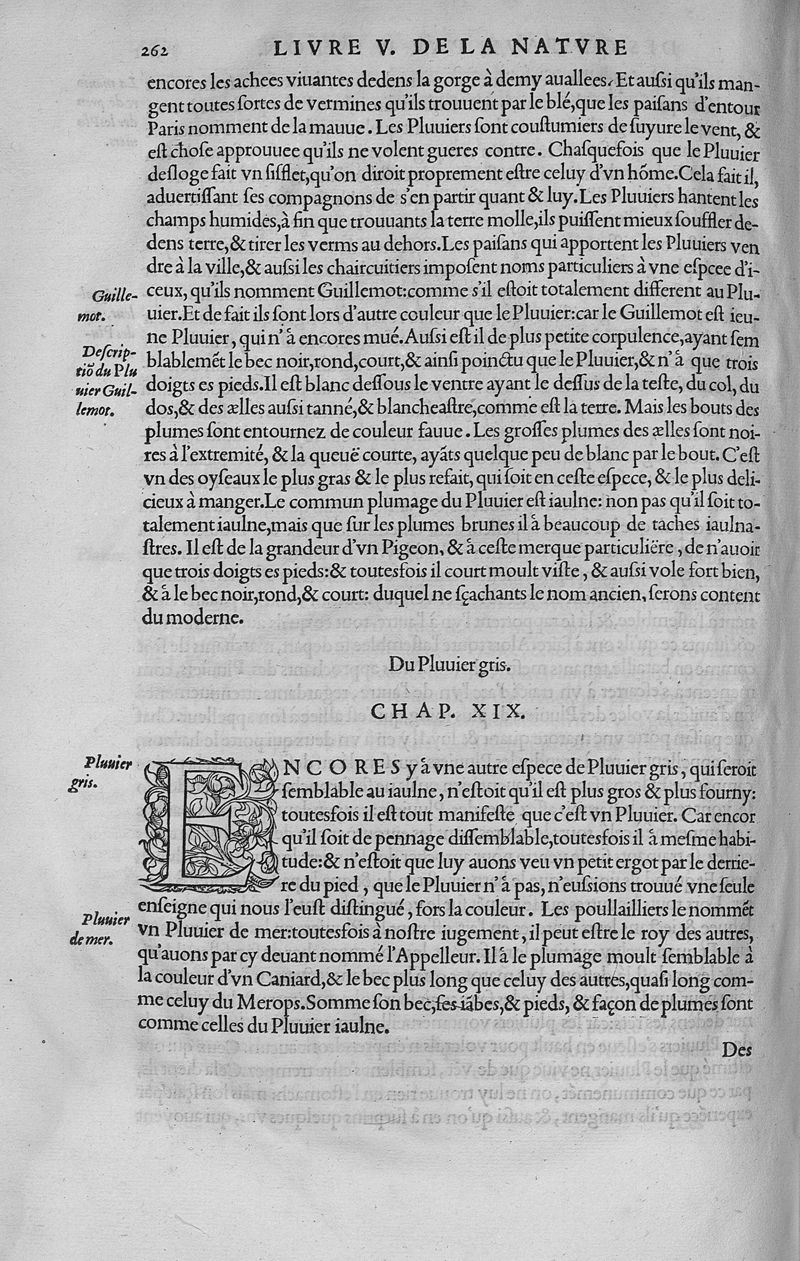 262 LIVRE V. DE LA NATVRE
encores les achees viuantes dedens la gorge à demy auallees. Et auſsi qu'ils man-
gent toutes ſortes de vermines qu'ils trouuent par le blé, que les paiſans d'entour
Paris nomment de la mauue. Les Pluuiers ſont couſtumiers de ſuyure le vent, &
eſt choſe approuuee qu'ils ne volent gueres contre. Chaſquefois que le Pluuier
deſloge fait vn ſifflet, qu'on diroit proprement eſtre celuy d'vn hõme. Cela fait il,
aduertiſſant ſes compagnons de s'en partir quant & luy. Les Pluuiers hantent les
champs humides, à fin que trouuants la terre molle, ils puiſſent mieux ſouffler de-
dens terre, & tirer les verms au dehors. Les paiſans qui apportent les Pluuiers ven
dre à la ville, & auſsi les chaircuitiers impoſent noms particuliers à vne eſpcee d'i-
Guille-
mot.
ceux, qu'ils nomment Guillemot: comme s'il eſtoit totalement different au Plu-
uier. Et de fait ils ſont lors d'autre couleur que le Pluuier: car le Guillemot eſt ieu-
ne Pluuier, qui n'à encores mué. Auſsi eſt il de plus petite corpulence, ayant ſem
Deſcrip-
tiõ du Plu
uier Guil-
lemot.
blablemẽt le bec noir, rond, court, & ainſi poinctu que le Pluuier, & n'à que trois
doigts es pieds. Il eſt blanc deſſous le ventre ayant le deſſus de la teſte, du col, du
dos, & des ælles auſsi tanné, & blancheaſtre, comme eſt la terre. Mais les bouts des
plumes ſont entournez de couleur fauue. Les groſſes plumes des ælles ſont noi-
res à l'extremité, & la queuë courte, ayãts quelque peu de blanc par le bout. C'eſt
vn des oyſeaux le plus gras & le plus refait, qui ſoit en ceſte eſpece, & le plus deli-
cieux à manger. Le commun plumage du Pluuier eſt iaulne: non pas qu'il ſoit to-
talement iaulne, mais que ſur les plumes brunes il à beaucoup de taches iaulna-
ſtres. Il eſt de la grandeur d'vn Pigeon, & à ceſte merque particuliëre, de n'auoir
que trois doigts es pieds: & toutesfois il court moult viſte, & auſsi vole fort bien,
& à le bec noir, rond, & court: duquel ne ſçachants le nom ancien, ſerons content
du moderne.
Du Pluuier gris.
CHAP. XIX.
Pluuier
gris.
ENCORES y à vne autre eſpece de Pluuier gris, qui ſeroit
ſemblable au iaulne, n'eſtoit qu'il eſt plus gros & plus fourny:
toutesfois il eſt tout manifeſte que c'eſt vn Pluuier. Car encor
qu'il ſoit de pennage diſſemblable, toutesfois il à meſme habi-
tude: & n'eſtoit que luy auons veu vn petit ergot par le derrie-
re du pied, que le Pluuier n'à pas, n'euſsions trouué vne ſeule
enſeigne qui nous l'euſt diſtingué, fors la couleur. Les poullailliers le nommẽt
Pluuier
de mer.
vn Pluuier de mer: toutesfois à noſtre iugement, il peut eſtre le roy des autres,
qu'auons par cy deuant nommé l'Appelleur. Il à le plumage moult ſemblable à
la couleur d'vn Caniard, & le bec plus long que celuy des autres, quaſi long com-
me celuy du Merops. Somme ſon bec, ſes iãbes, & pieds, & façon de plumes ſont
comme celles du Pluuier iaulne.
Des